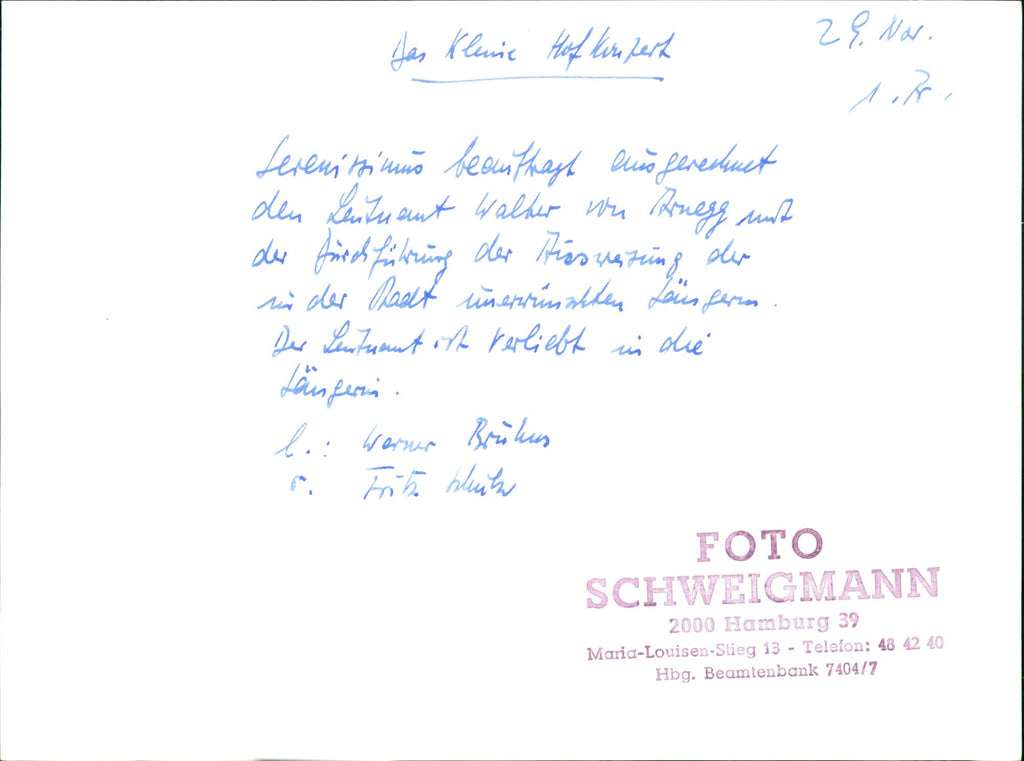 Das Kleine Hofkonzert
29. Nov.
1. Pr.
Serenissimus beauftragt ausgerechnet
den Leutnant Walter von Arnegg mit
der Durchführung der Ausweisung der
in der Stadt unerwünschten Sängerin.
Der Leutnant ist verliebt in die
Sängerin.
l.: Werner Bruhns
r. Fritz Schulz
FOTO
SCHWEIGMANN
2000 Hamburg 39
Maria-Louisen-Stieg 13 - Telefon: 48 42 40
Hbg. Beamtenbank 7404/7